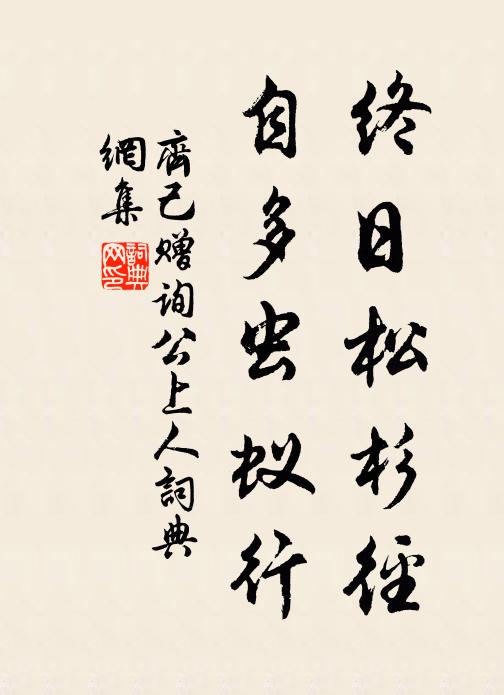 終日松杉徑
自多虫蚁行
齊己贈詢公上人詞典
網集
詞典
网印